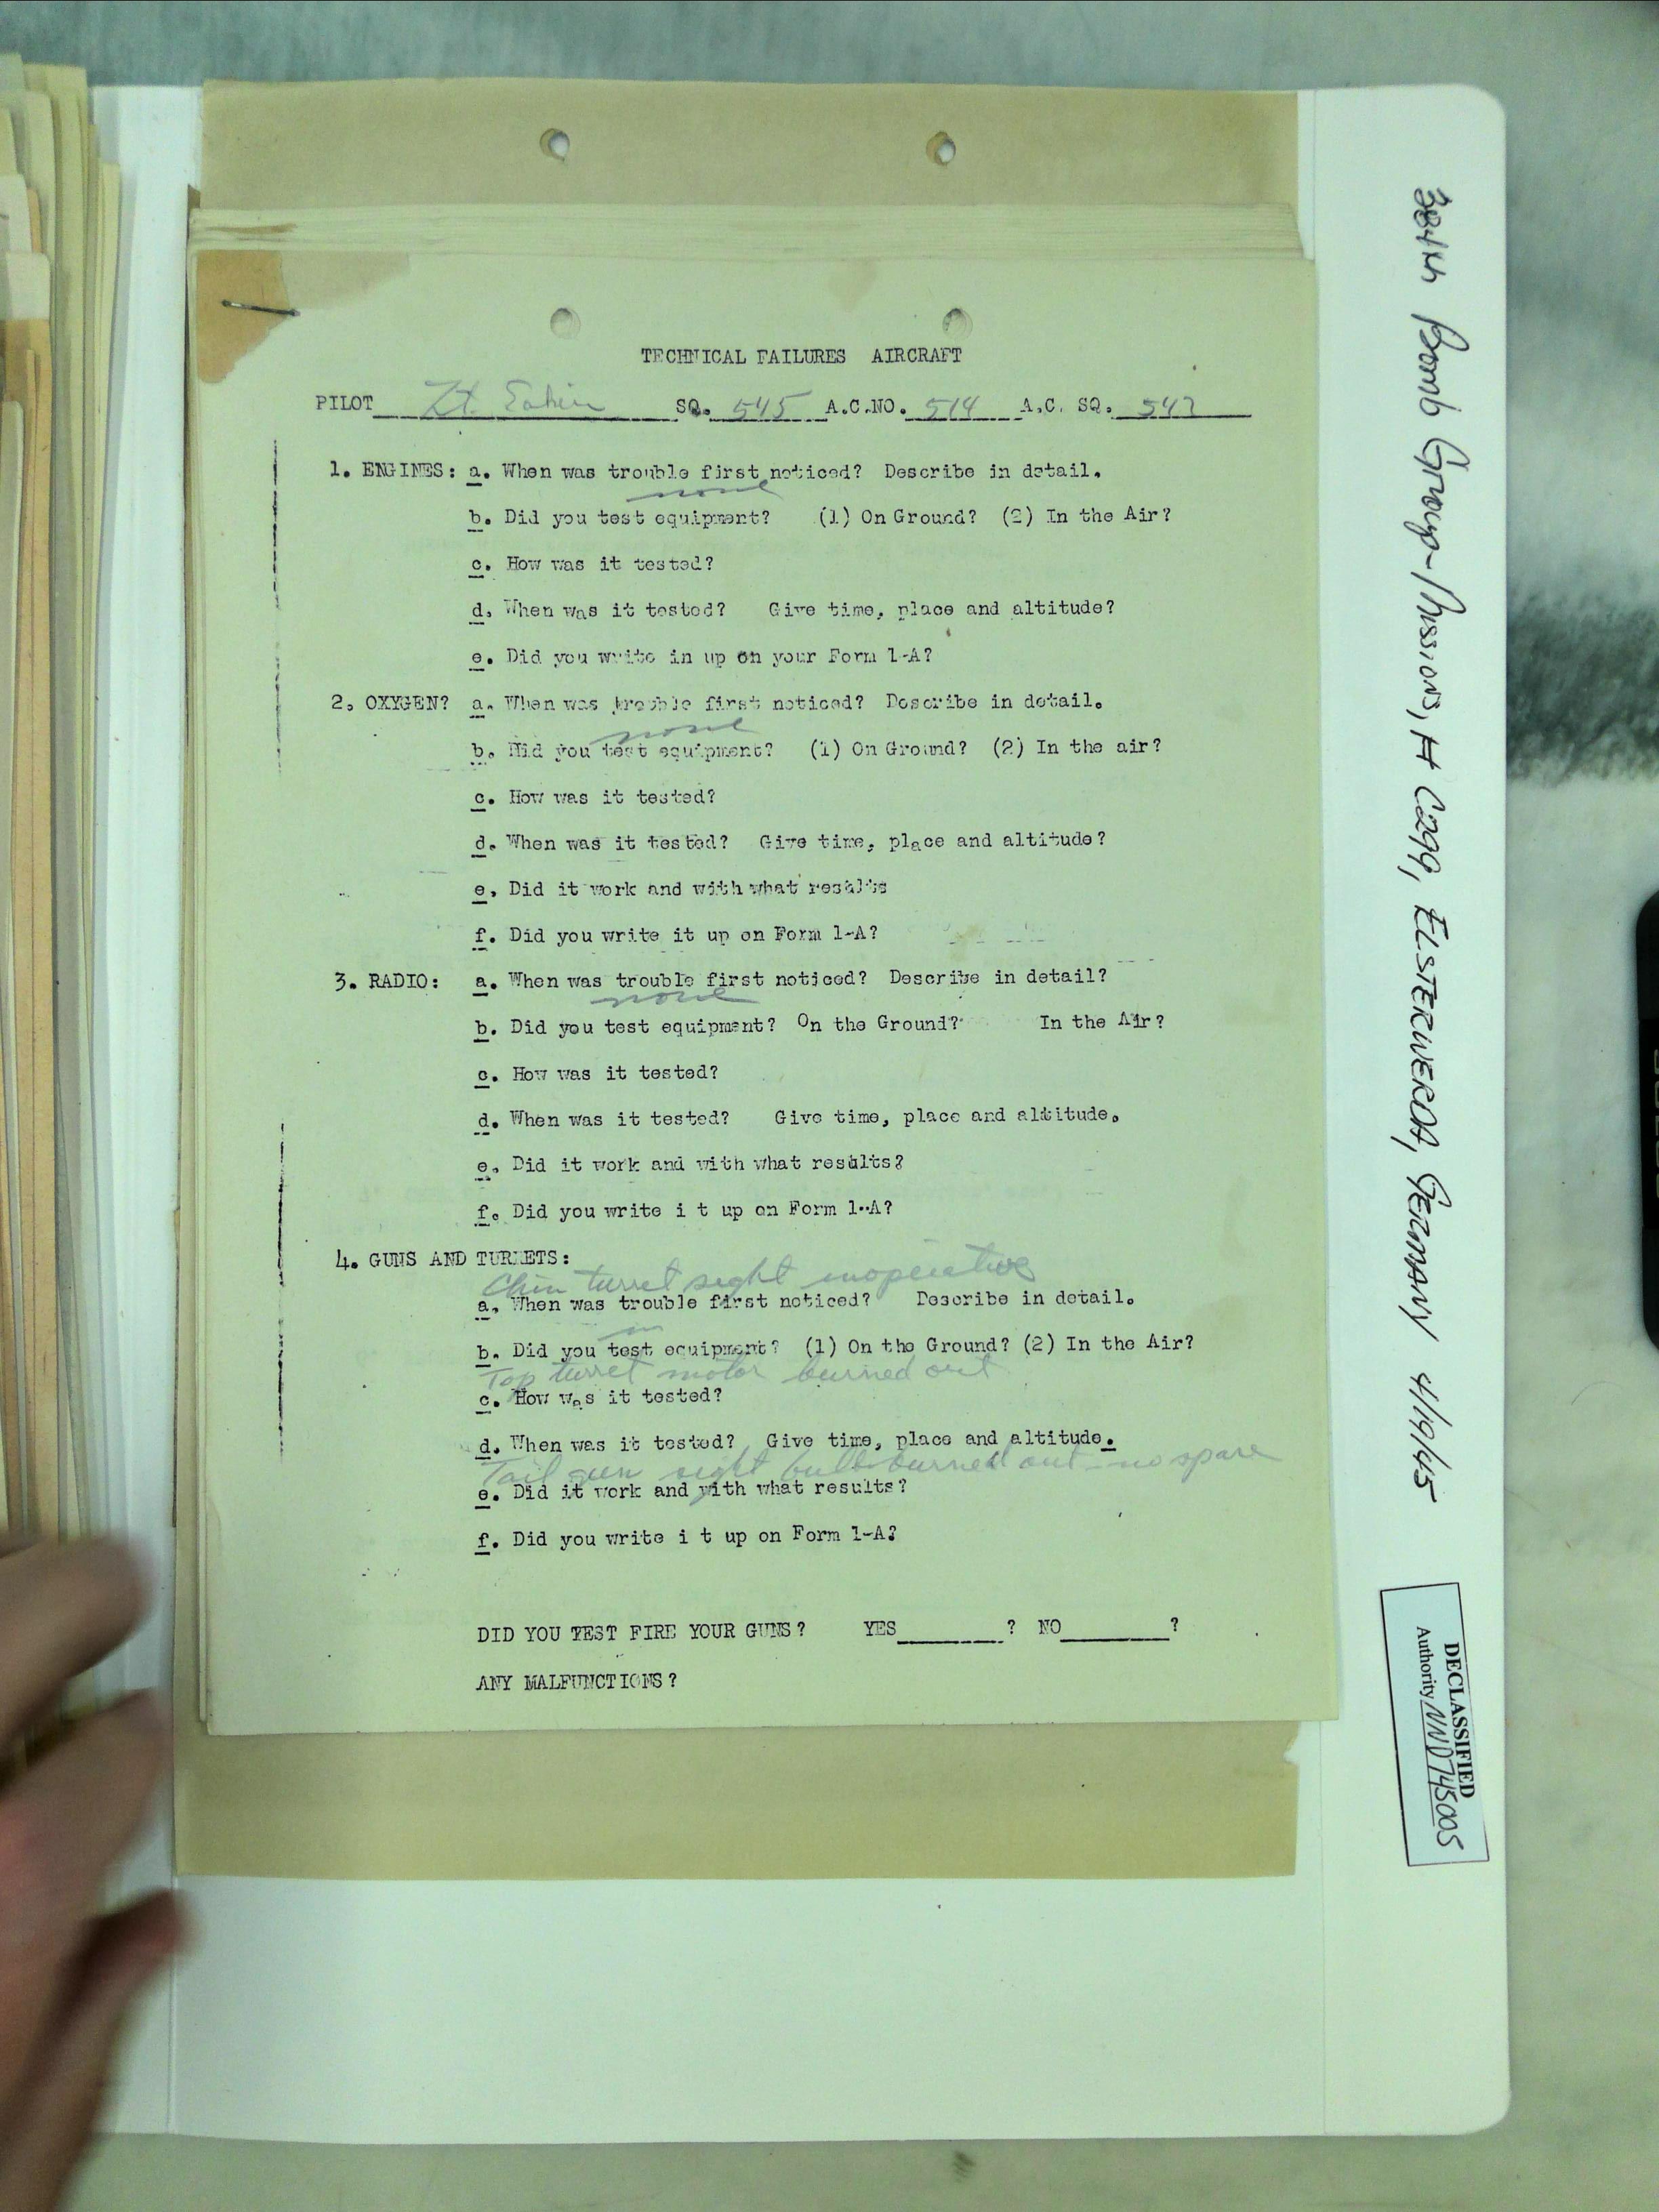 TECHNICAL FAILURES AIRCRAFT
PILOT Lt. Eakin SQ. 545 A.C.NO. 514 A.C. SQ. 547
1. ENGINES: a. When was trouble first noticed? Describe in detail.
none
b. Did you test equipment? (1) On Ground? (2) In the Air?
c. How was it tested?
d. When was it tested? Give time, place and altitude?
e. Did you write in up on your Form 1-A?
2. OXYGEN? a. When was trouble first noticed? Describe in detail.
none
b. Did you test equipment? (1) On Ground? (2) In the air?
c. How was it tested?
d. When was it tested? Give time, place and altitude?
e. Did it work and with what results
f. Did you write it up on Form 1-A?
3. RADIO: a. When was trouble first noticed? Describe in detail?
none
b. Did you test equipment? On the Ground? In the Air?
c. How was it tested?
d. When was it tested? Give time, place and altitude.
e. Did it work and with what results?
f. Did you write i t up on Form 1-A?
4. GUNS AND TURRETS:
Chin turret sight inoperative
a. When was trouble first noticed? Describe in detail.
b. Did you test equipment? (1) On the Ground? (2) In the Air?
Top turret motor burned out
c. How was it tested?
d. When was it tested? Give time, place and altitude.
Tail gun sight bulb burned out - no spare
e. Did it work and with what results?
f. Did you write i t up on Form 1-A?
DID YOU TEST FIRE YOUR GUNS? YES ? NO ?
ANY MALFUNCTIONS?
384th Bomb Group - Mission, # C299, ELSTERWERDA, GERMANY 4/19/45
DECLASSIFIED
Authority NND 745005